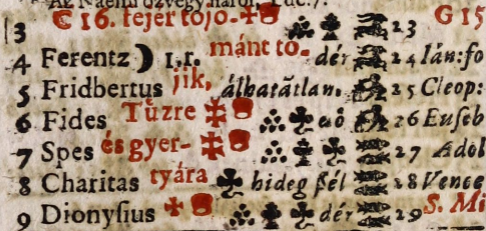 Az Naëmi özvegyaßßoñ. Luc. 7.
3 C 16. fejer tojo- 23 G 15
4 Ferentz ☽ 1.r. mánt to- dér 24 lán: fo
5 Fridbertus jik, álhatātlan. 25 Cleop:
6 Fides Tüzre aö 26 Euſeb
7 Spes és gyer- 27 Adol
8 Charitas tyára hideg ßél 28 Vence
9 Dionyſius dér 29 S. Mi